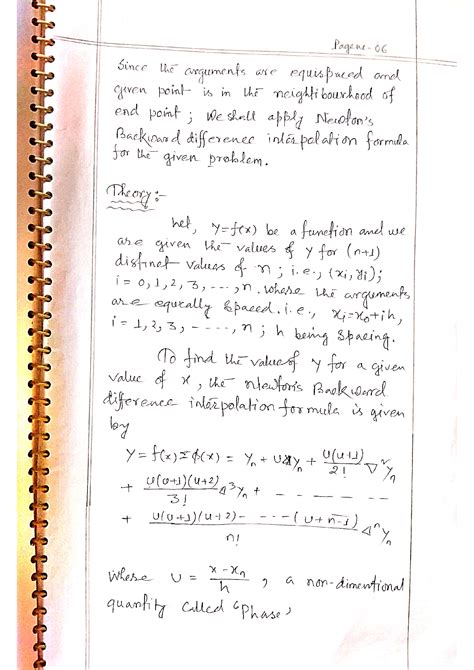 Page no - 06
Since the arguments are equispaced and
given point is in the neighbourhood of
end point ; We shall apply Newton's
Backward difference interpolation formula
for the given problem.
Theory :-
Let, y=f(x) be a function and we
are given the values of y for (n+1)
distinct values of n ; i.e., (xi, yi);
i = 0, 1, 2, 3, ----, n. where the arguments
are equally spaced. i.e., xi = x0 + ih,
i = 1, 2, 3, - ----, n ; h being spacing.
To find the value of y for a given
value of x, the Newton's Backward
difference interpolation formula is given
by
y = f(x) ≅ φ(x) = yn + u∇yn + u(u+1)/2! ∇²yn
+ u(u+1)(u+2)/3! ∇³yn + - - - - - -
+ u(u+1)(u+2)- - - - -(u+n-1)/n! ∇ⁿyn
where u = x-xn/h , a non-dimentional
quantity called 'Phase'